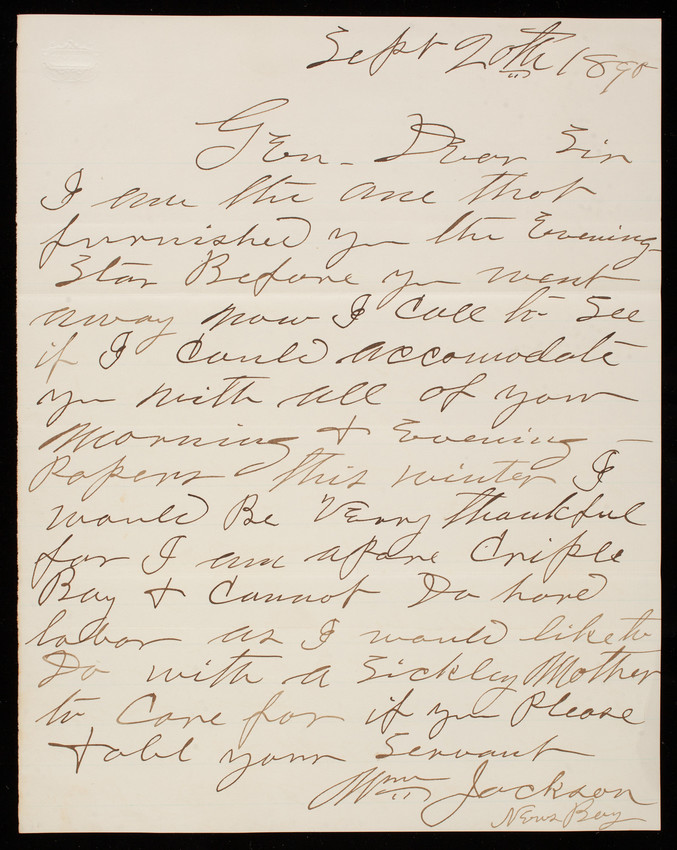 Sept 20th 1890
Gen - Dear Sir
I am the one that
furnished you the Evening
Star Before you went
away now I Call to See
if I Could accomodate
you with all of your
Morning & Evening -
Papers this winter I
would Be Verry thankful
for I am a Pore Criple
Boy & Cannot Do hard
labor as I would like to
Do with a Sickley Mother
to Care for if you Please
& obl your Servant
Wm Jackson
News Boy